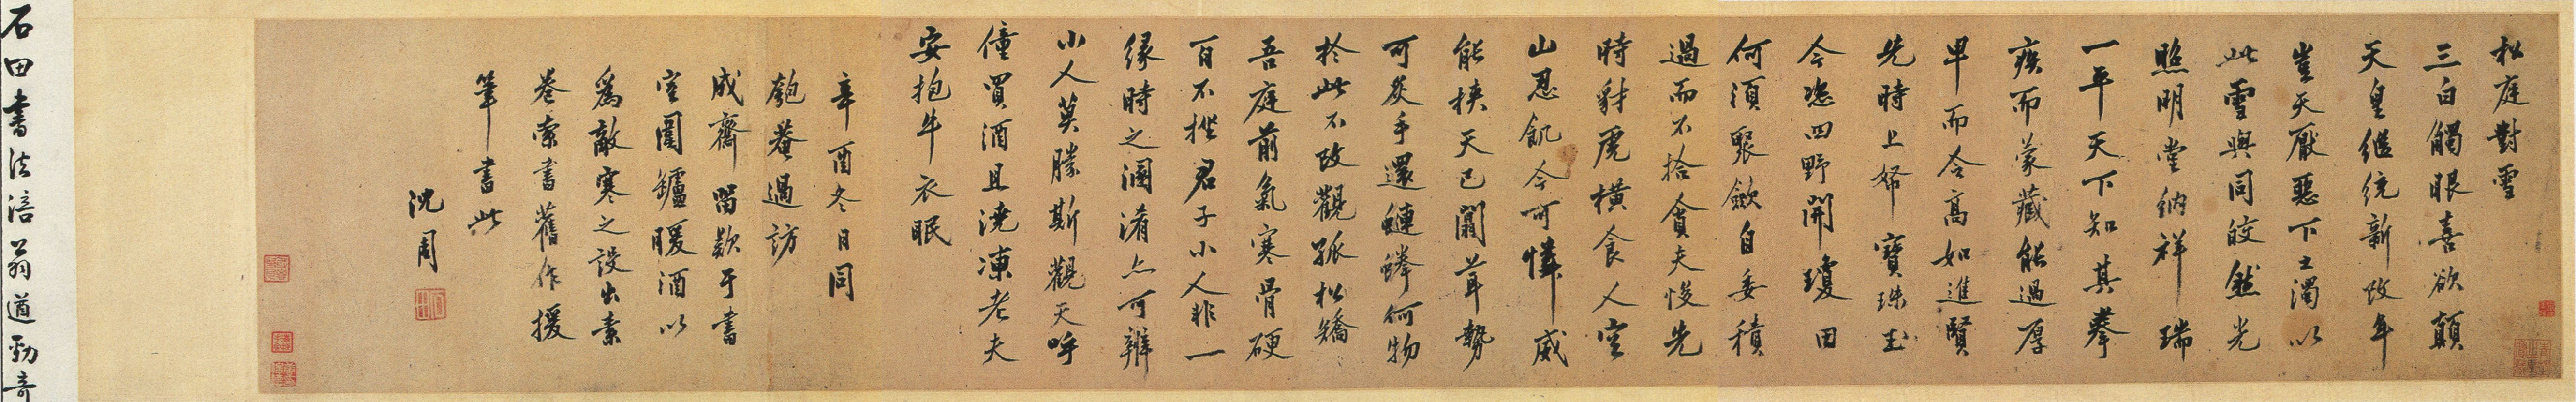 松庭對雪
三白觸眼喜欲顛
天皇繼統新改年
豈天厭惡下土濁以
此雪與同皎然光
照明堂納祥瑞
一平天下知其拳
疾而蒙藏能過厚
卑而令高如進賢
先時上帑寶珠玉
今恣四野開瓊田
何須聚歛自委積
過而不拾貪夫悛先
時豺虎橫食人空
山忍飢今可憐威
能挾天已闒茸勢
可炙手還連蜷何物
於此不改觀孤松矯
吾庭前氣寒骨硬
百不挫君子小人非一
緣時之溷淆亦可辨
小人莫勝斯觀天呼
僮買酒且澆凍老夫
安抱牛衣眠
辛酉冬日同
匏菴過訪
成齋留款于書
室圍鑪暖酒以
為敵寒之設出素
卷索書舊作援
筆書此
沈周
石田書法涪翁遒勁奇